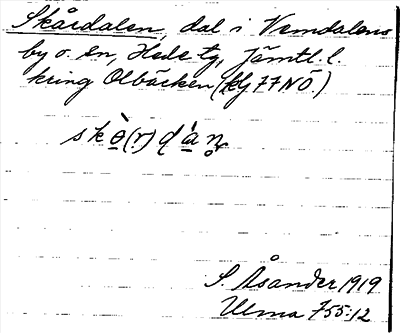 Skårdalen, dal i Vemdalens
by o. sn, Hede tg, Jämtl. l.
kring Olbäcken (kbl 77NÖ.)
skò̱(r)dá̱n̥
S. Åsander 1919
Ulma 755:12